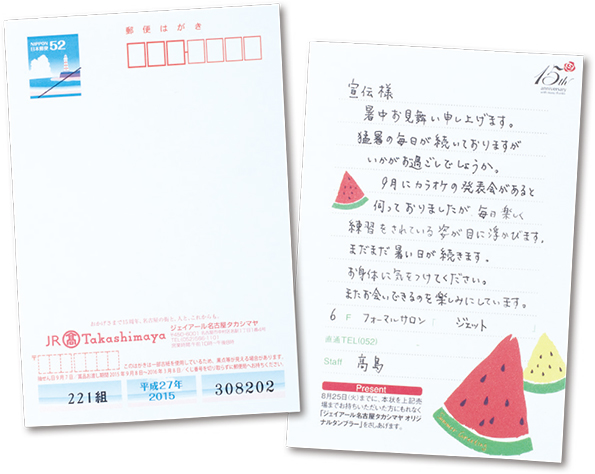 郵便はがき
NIPPON
日本郵便
52
おかげさまで15周年。名古屋の街と、人と、これからも。
JR 髙 Takashimaya
ジェイアール名古屋タカシマヤ
221組
平成27年
2015
308202
15th
ANNIVERSARY
宣伝様
暑中お見舞い申し上げます。
猛暑の毎日が続いておりますが
いかがお過ごしでしょうか。
9月にカラオケの発表会があると
伺っておりましたが 毎日楽しく
練習をされている姿が目に浮かびます。
まだまだ暑い日が続きます。
お身体に気をつけてください。
またお会いできるのを楽しみにしています。
6 F フォーマルサロン ( ジェット )
直通TEL(052)
Staff 髙島
Present
8月25日(火)までに、本状を上記売
場までお持ちいただいた方にもれなく
「ジェイアール名古屋タカシマヤ オリジ
ナルタンブラー」をさしあげます。
Summer Greeting